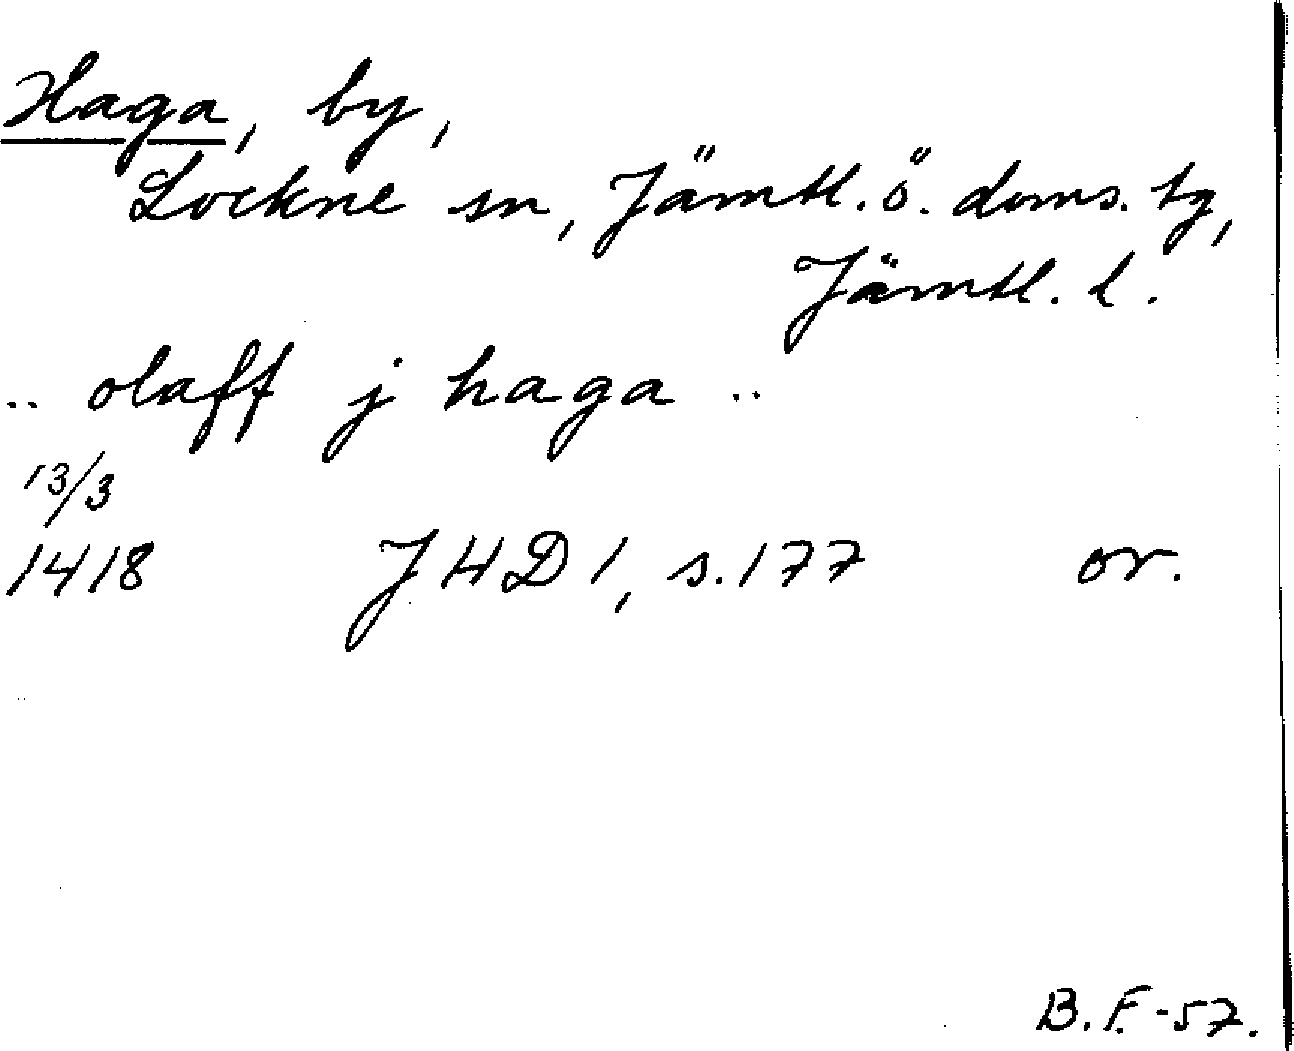 Haga, by,
Lockne sn, Jämtl. ö. doms. tg,
Jämtl. l.
.. olaff j haga ..
13/3
1418 JHD 1, s. 177 or.
B.F.-57.